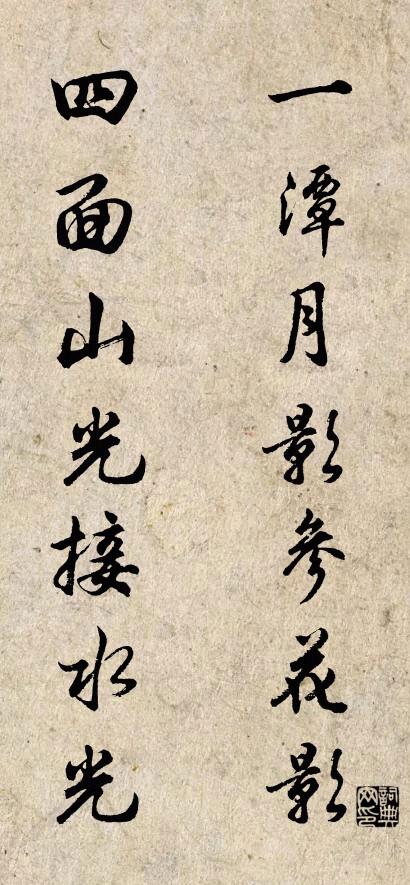 一潭月影參花影
四面山光接水光
詞典网印